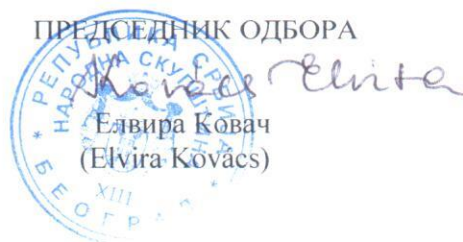 ПРЕДСЕДНИК ОДБОРА
Kovács Elvira
Елвира Ковач
(Elvira Kovács)
РЕПУБЛИКА СРБИЈА
НАРОДНА СКУПШТИНА
XIII
БЕОГРАД